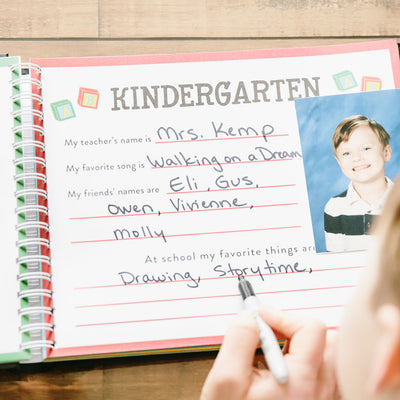 KINDERGARTEN
My teacher's name is Mrs. Kemp
My favorite song is Walking on a Dream
My friends' names are Eli, Gus,
Owen, Vivienne,
Molly
At school my favorite things are
Drawing, Storytime,